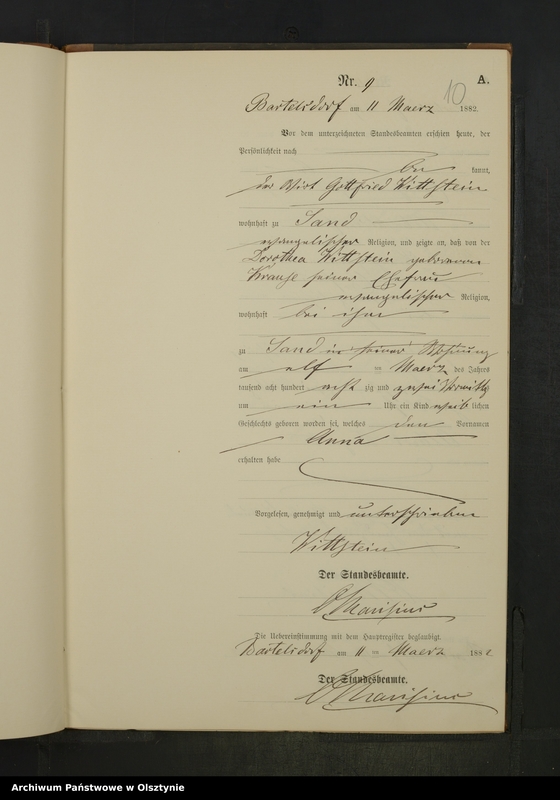 Nr. 9
A.
10
Bartelsdorf am 11 Maerz 1882.
Vor dem unterzeichneten Standesbeamten erschien heute, der
Persönlichkeit nach
be kannt,
der Wirt Gottfried Wittstein
wohnhaft zu Sand
evangelischer Religion, und zeigte an, daß von der
Dorothea Wittstein geborenen
Krause seiner Ehefrau
evangelischer Religion,
wohnhaft bei ihm
zu Sand in seiner Wohnung
am elf ten Maerz des Jahres
tausend acht hundert acht zig und zwei Vormittags
um ein Uhr ein Kind weib lichen
Geschlechts geboren worden sei, welches den Vornamen
Anna
erhalten habe
Vorgelesen, genehmigt und unterschrieben
Wittstein
Der Standesbeamte.
Die Uebereinstimmung mit dem Hauptregister beglaubigt.
Bartelsdorf am 11 ten Maerz 1882
Der Standesbeamte.
Archiwum Państwowe w Olsztynie